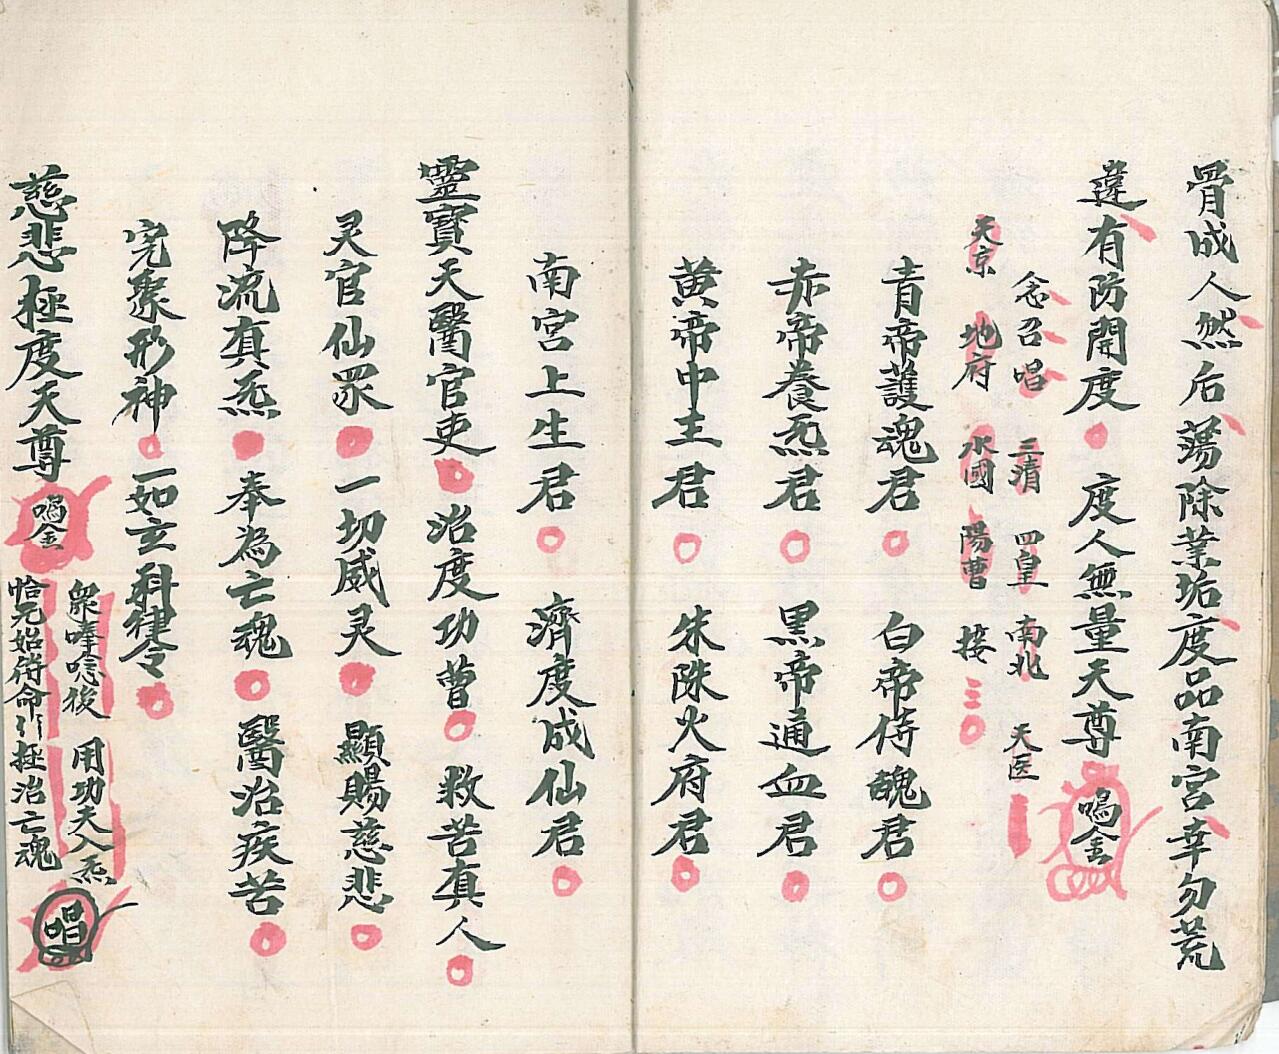 骨成人然后蕩除業垢度品南宮幸勿荒
違有防開度 度人無量天尊 鳴金
念召唱 三清 四皇 南北 天医
天京 地府 水國 陽曹 接三
青帝護魂君 白帝侍魄君
赤帝養炁君 黑帝通血君
黄帝中主君 朱陵火府君
南宮上生君 濟度成仙君
靈寶天醫官吏 治度功曹 救苦真人
灵官仙眾 一切威灵 顯賜慈悲
降流真炁 奉為亡魂 醫治疾苦
完聚形神 一如玄科律令
慈悲拯度天尊 鳴金
衆唪唸後 用功夫入炁
恰元始符命引拯治亡魂 唱